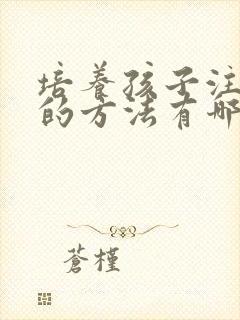 培养孩子注
的方法有哪
苍槿